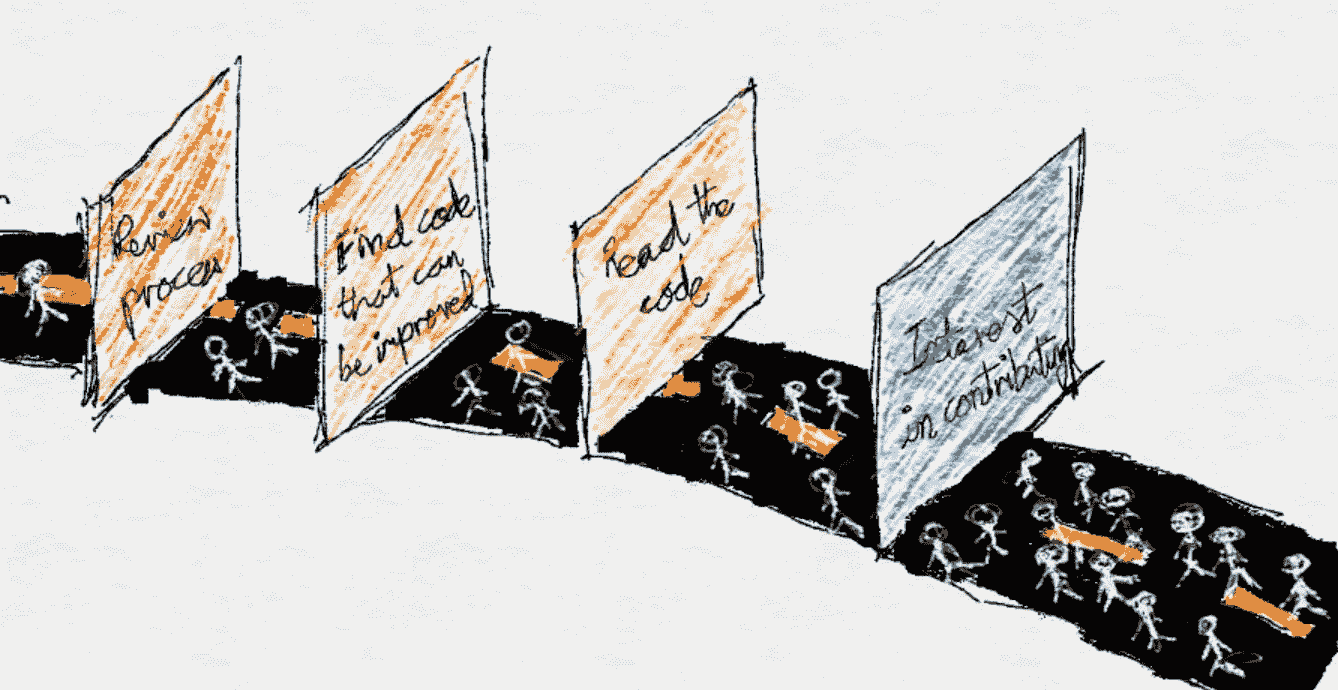 Review
process
Find code
that can
be improved
Read the
code
Interest
in contributing